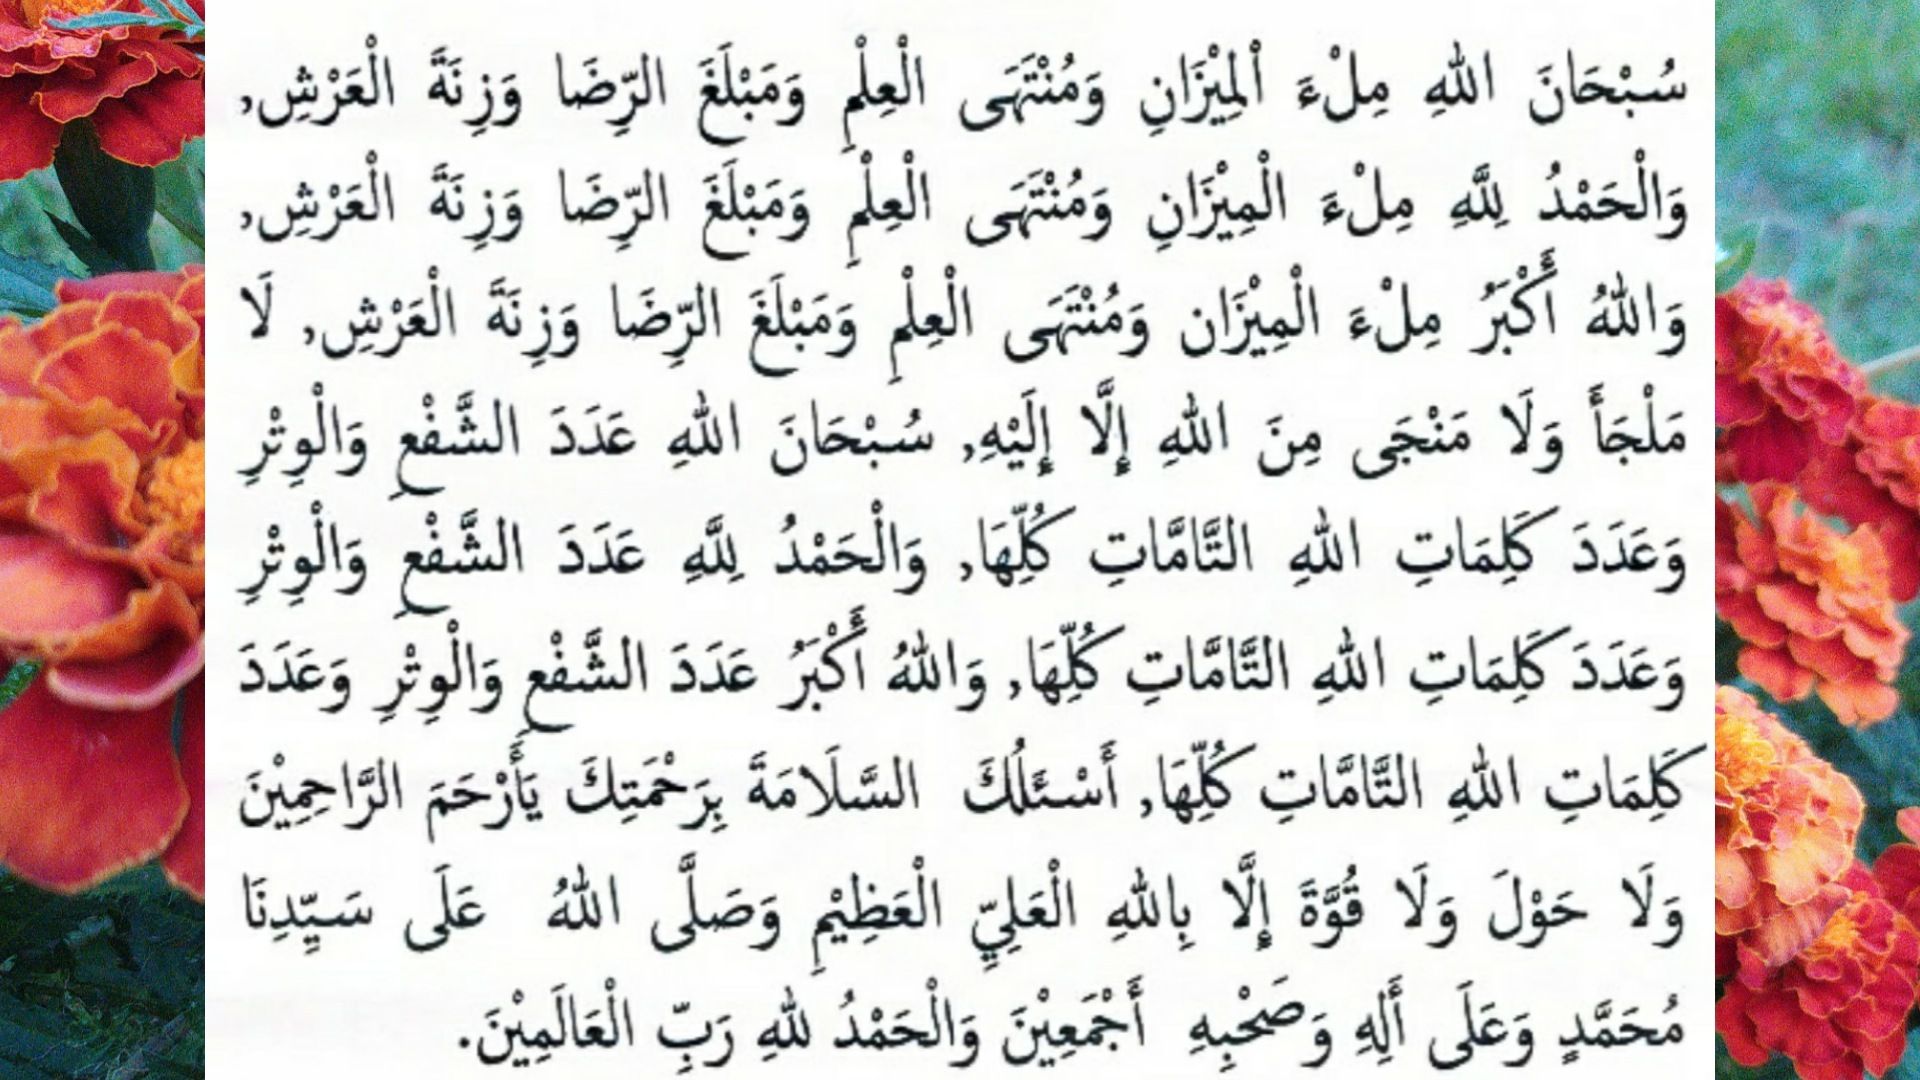 سُبْحَانَ اللهِ مِلْءَ اْلمِيْزَانِ وَمُنْتَهَى الْعِلْمِ وَمَبْلَغَ الرِّضَا وَزِنَةَ الْعَرْشِ,
وَالْحَمْدُ لِلَّهِ مِلْءَ الْمِيْزَانِ وَمُنْتَهَى الْعِلْمِ وَمَبْلَغَ الرِّضَا وَزِنَةَ الْعَرْشِ,
وَاللهُ أَكْبَرُ مِلْءَ الْمِيْزَانِ وَمُنْتَهَى الْعِلْمِ وَمَبْلَغَ الرِّضَا وَزِنَةَ الْعَرْشِ, لَا
مَلْجَأَ وَلَا مَنْجَى مِنَ اللهِ إِلَّا إِلَيْهِ, سُبْحَانَ اللهِ عَدَدَ الشَّفْعِ وَالْوِتْرِ
وَعَدَدَ كَلِمَاتِ اللهِ التَّامَّاتِ كُلِّهَا, وَالْحَمْدُ لِلَّهِ عَدَدَ الشَّفْعِ وَالْوِتْرِ
وَعَدَدَ كَلِمَاتِ اللهِ التَّامَّاتِ كُلِّهَا, وَاللهُ أَكْبَرُ عَدَدَ الشَّفْعِ وَالْوِتْرِ وَعَدَدَ
كَلِمَاتِ اللهِ التَّامَّاتِ كُلِّهَا, أَسْئَلُكَ السَّلَامَةَ بِرَحْمَتِكَ يَأَرْحَمَ الرَّاحِمِيْنَ
وَلَا حَوْلَ وَلَا قُوَّةَ إِلَّا بِاللهِ الْعَلِيِّ الْعَظِيْمِ وَصَلَّى اللهُ عَلَى سَيِّدِنَا
مُحَمَّدٍ وَعَلَى أَلِهِ وَصَحْبِهِ أَجْمَعِيْنَ وَالْحَمْدُ للهِ رَبِّ الْعَالَمِيْنَ.